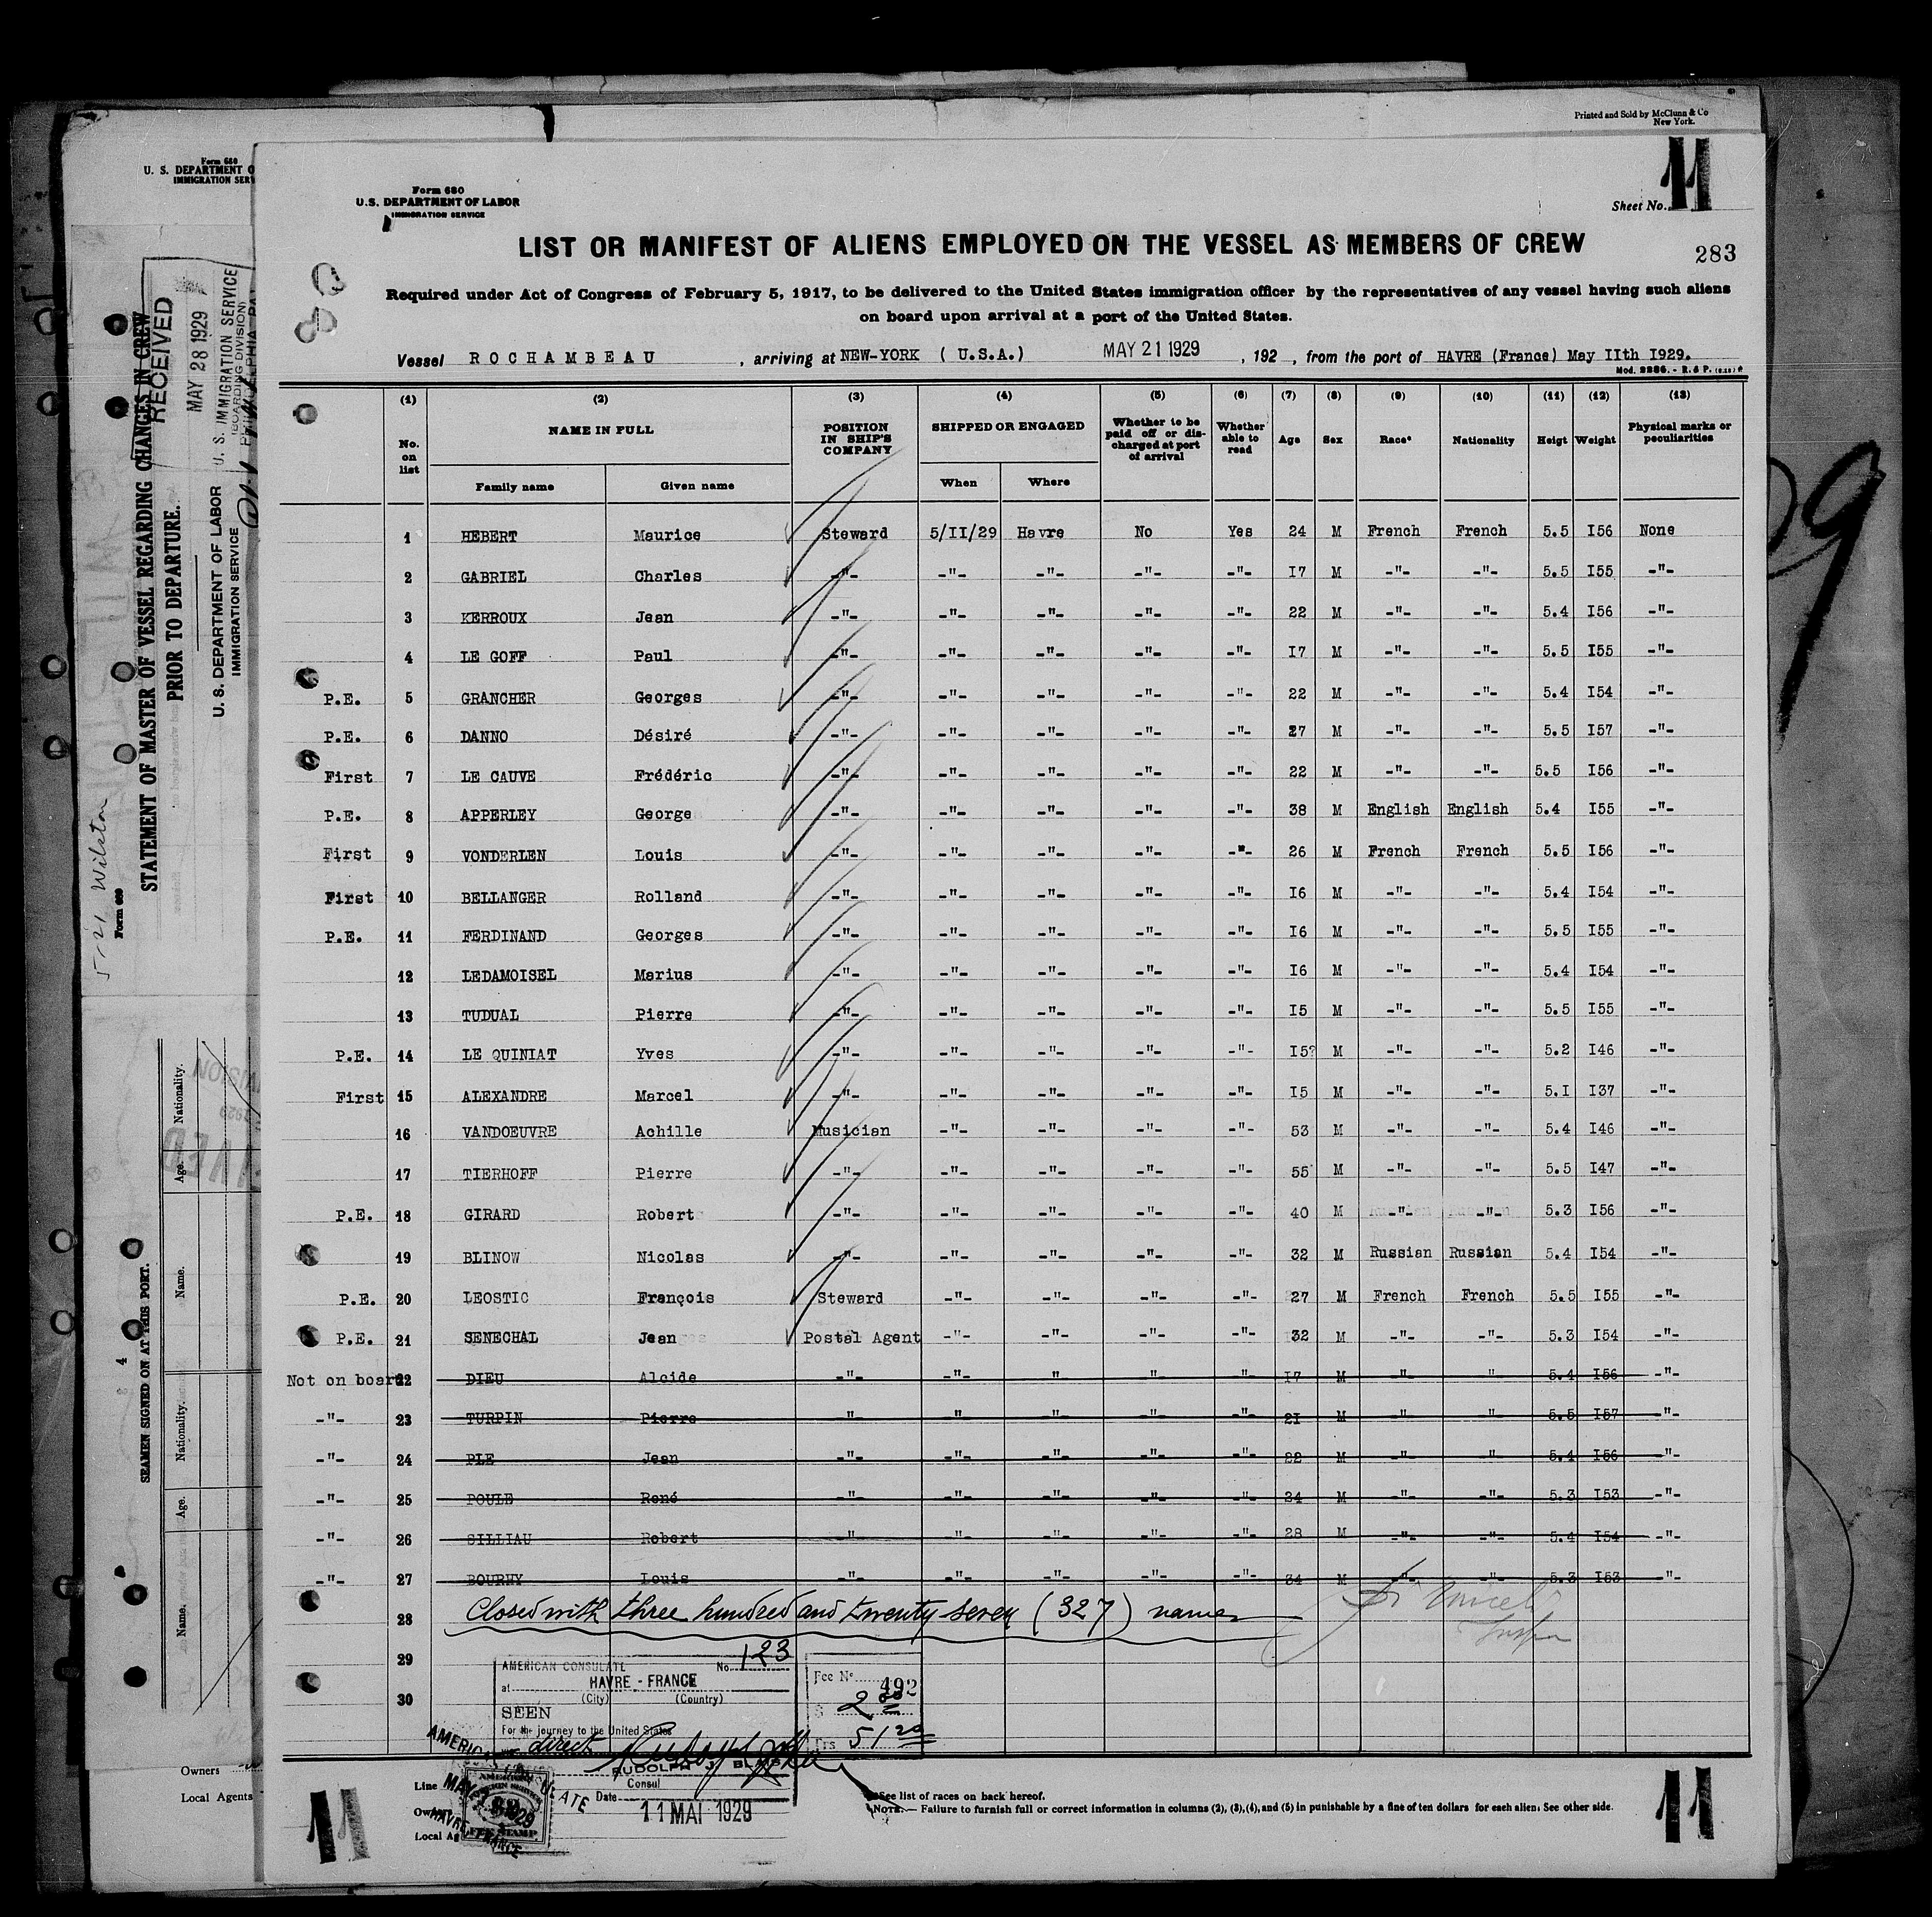 Printed and Sold by McClunn & Co
New York.
Form 680
U. S. DEPARTMENT O
IMMIGRATION SERV
Form 680
U.S. DEPARTMENT OF LABOR
IMMIGRATION SERVICE
Sheet No. 11
LIST OR MANIFEST OF ALIENS EMPLOYED ON THE VESSEL AS MEMBERS OF CREW
283
Required under Act of Congress of February 5, 1917, to be delivered to the United States immigration officer by the representatives of any vessel having such aliens
on board upon arrival at a port of the United States.
Vessel ROCHAMBEAU , arriving at NEW-YORK ( U.S.A.) MAY 21 1929 , 192 , from the port of HAVRE (France) May IIth I929.
Mod. 2286. - R. & P.
(1) (2) (3) (4) (5) (6) (7) (8) (9) (10) (11) (12) (13)
No. on list NAME IN FULL POSITION IN SHIP'S COMPANY SHIPPED OR ENGAGED Whether to be paid off or discharged at port of arrival Whether able to read Age Sex Race* Nationality Heigt Weight Physical marks or peculiarities
Family name Given name When Where
1 HEBERT Maurice Steward 5/II/29 Havre No Yes 24 M French French 5.5 I56 None
2 GABRIEL Charles -"- -"- -"- -"- -"- I7 M -"- -"- 5.5 I55 -"-
3 KERROUX Jean -"- -"- -"- -"- -"- 22 M -"- -"- 5.4 I56 -"-
4 LE GOFF Paul -"- -"- -"- -"- -"- I7 M -"- -"- 5.5 I55 -"-
P.E. 5 GRANCHER Georges -"- -"- -"- -"- -"- 22 M -"- -"- 5.4 I54 -"-
P.E. 6 DANNO Désiré -"- -"- -"- -"- -"- 27 M -"- -"- 5.5 I57 -"-
First 7 LE CAUVE Frédéric -"- -"- -"- -"- -"- 22 M -"- -"- 5.5 I56 -"-
P.E. 8 APPERLEY George -"- -"- -"- -"- -"- 38 M English English 5.4 I55 -"-
First 9 VONDERLEN Louis -"- -"- -"- -"- -"- 26 M French French 5.5 I56 -"-
First 10 BELLANGER Rolland -"- -"- -"- -"- -"- I6 M -"- -"- 5.4 I54 -"-
P.E. 11 FERDINAND Georges -"- -"- -"- -"- -"- I6 M -"- -"- 5.5 I55 -"-
12 LEDAMOISEL Marius -"- -"- -"- -"- -"- I6 M -"- -"- 5.4 I54 -"-
13 TUDUAL Pierre -"- -"- -"- -"- -"- I5 M -"- -"- 5.5 I55 -"-
P.E. 14 LE QUINIAT Yves -"- -"- -"- -"- -"- I5 M -"- -"- 5.2 I46 -"-
First 15 ALEXANDRE Marcel -"- -"- -"- -"- -"- I5 M -"- -"- 5.I I37 -"-
16 VANDOEUVRE Achille Musician -"- -"- -"- -"- 53 M -"- -"- 5.4 I46 -"-
17 TIERHOFF Pierre -"- -"- -"- -"- -"- 55 M -"- -"- 5.5 I47 -"-
P.E. 18 GIRARD Robert -"- -"- -"- -"- -"- 40 M -"- -"- 5.3 I56 -"-
19 BLINOW Nicolas -"- -"- -"- -"- -"- 32 M Russian Russian 5.4 I54 -"-
P.E. 20 LEOSTIC François Steward -"- -"- -"- -"- 27 M French French 5.5 I55 -"-
P.E. 21 SENECHAL Jean Postal Agent -"- -"- -"- -"- 32 M -"- -"- 5.3 I54 -"-
Not on board 22 DIEU Alcide -"- -"- " " "- I7 M -"- " 5.4 I56 -"-
-"- 23 TURPIN Pierre " " -"- " -"- 2I M " " 5.5 I57 -"-
-"- 24 PLE Jean -"- -"- -"- -"- -"- 22 M " " 5.4 I56 -"-
-"- 25 POULE René -"- -"- -"- -"- -"- 24 M -"- -"- 5.3 I53 -"-
-"- 26 SILLIAU Robert " -"- -"- -"- -"- 28 M -"- -"- 5.4 I54 -"-
-"- 27 BOURHY Louis -"- -"- -"- -"- -"- 34 M -"- -"- 5.3 I63 -"-
28 Closed with three hundred and twenty seven (327) names
29
30
AMERICAN CONSULATE No. 123
at HAVRE - FRANCE
(City) (Country)
SEEN
For the journey to the United States
direct
RUDOLPH
Consul
Date
11 MAI 1929
Fee No 492
$ 2 00
Frs 51 20
AMERICAN FOREIGN SERVICE
FEE STAMP
HAVRE, FRANCE
Line
Owners
Local Ag
* See list of races on back hereof.
NOTE.— Failure to furnish full or correct information in columns (2), (3), (4), and (5) in punishable by a fine of ten dollars for each alien. See other side.
11
11
STATEMENT OF MASTER OF VESSEL REGARDING CHANGES IN CREW
PRIOR TO DEPARTURE.
U. S. DEPARTMENT OF LABOR
IMMIGRATION SERVICE
RECEIVED
MAY 28 1929
U. S. IMMIGRATION SERVICE
(BOARDING DIVISION)
PHILADELPHIA PA
5-21 Wilston
Form 689
SEAMEN SIGNED ON AT THIS PORT.
4
Name. Age. Nationality. Name. Age. Nationality.
Owners
Local Agents